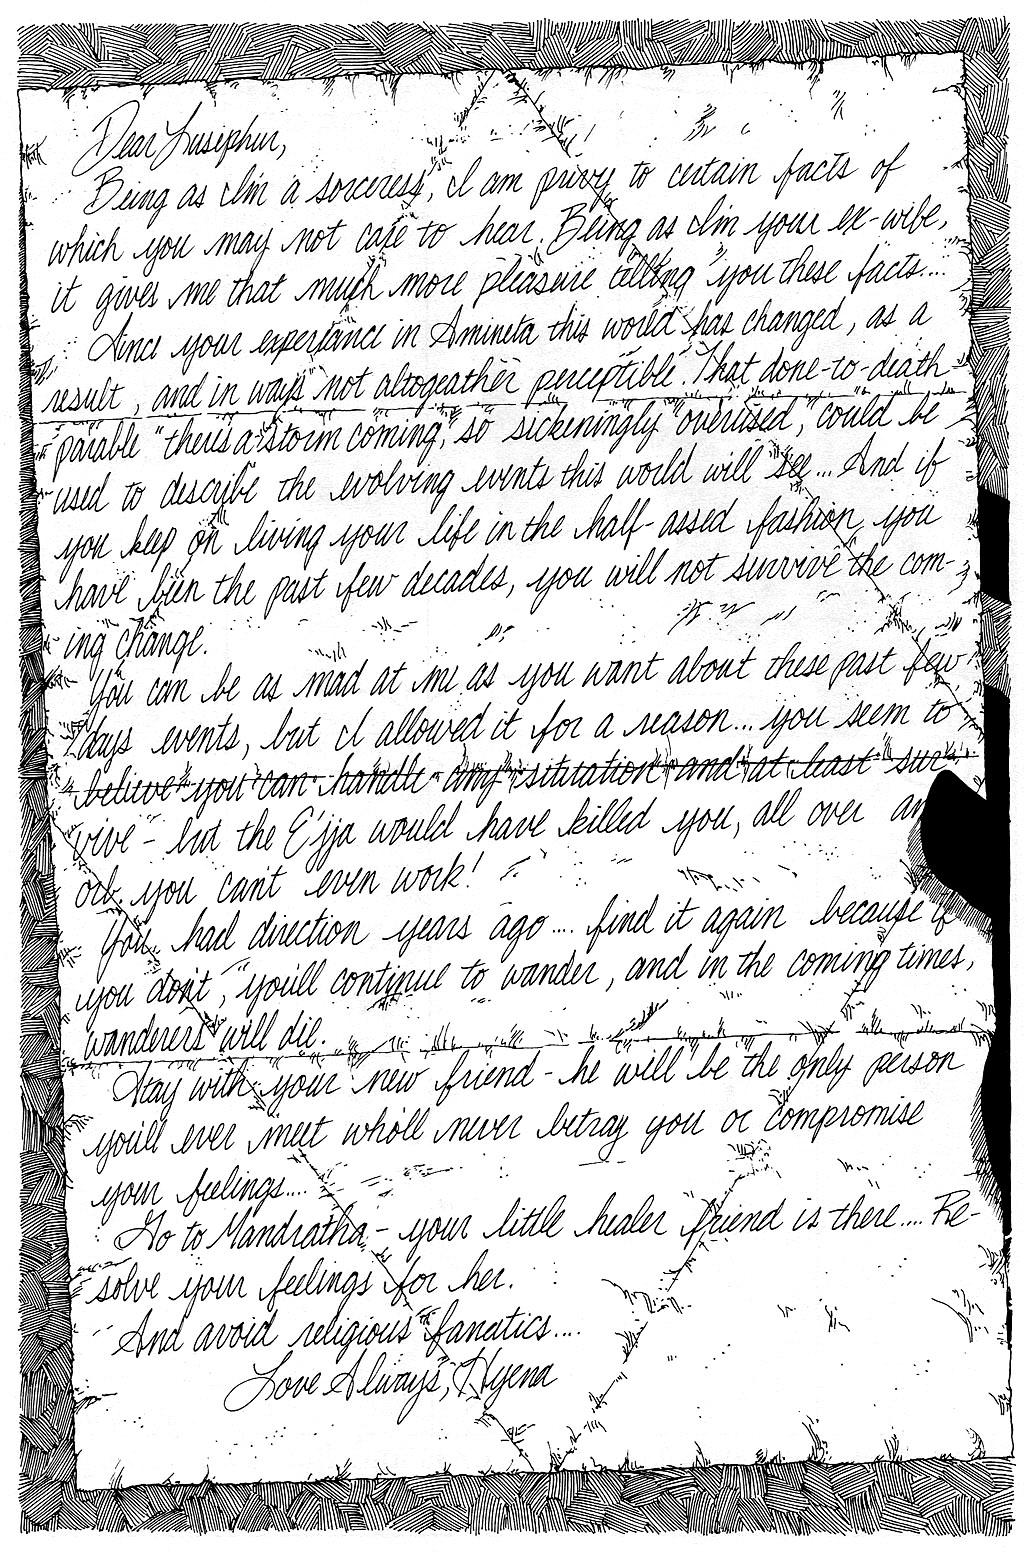 Dear Lusiphur,
Being as I'm a sorceress, I am privy to certain facts of
which you may not care to hear. Being as I'm your ex-wife,
it gives me that much more pleasure telling you these facts....
Since your experiance in Amineta this world has changed, as a
result, and in ways not altogeather perceptible. That done-to-death
parable "there's a storm coming," so sickeningly overused, could be
used to describe the evolving events this world will see... And if
you keep on living your life in the half-assed fashion you
have been the past few decades, you will not survive the com-
ing change.
You can be as mad at me as you want about these past few
days events, but I allowed it for a reason... you seem to
believe you can handle any situation and at least sur-
vive - but the E'jja would have killed you, all over an
orb you can't even work!
You had direction years ago.... find it again because if
you don't, you'll continue to wander, and in the coming times,
wanderers will die.
Stay with your new friend - he will be the only person
you'll ever meet who'll never betray you or compromise
your feelings....
Go to Mandratha - your little healer friend is there.... Re-
solve your feelings for her.
And avoid religious fanatics....
Love Always, Hyena